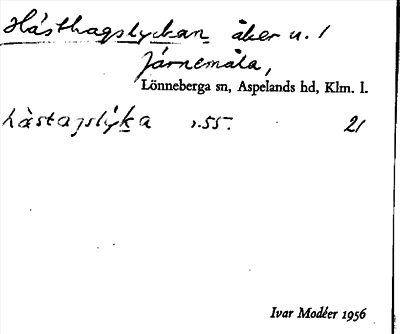 Hásthagslyckan åker u. 1
Járnemåla,
Lönneberga sn, Aspelands hd, Klm. l.
hàstagslýka 55. 21
Ivar Modéer 1956